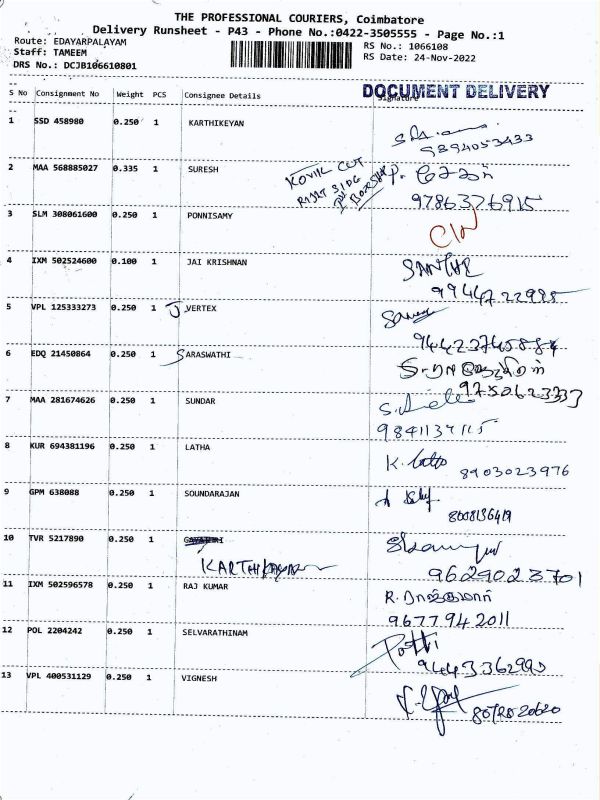 THE PROFESSIONAL COURIERS, Coimbatore
Delivery Runsheet - P43 - Phone No.:0422-3505555 - Page No.:1
Route: EDAYARPALAYAM
Staff: TAMEEM
DRS No.: DCJB106610801
RS No.: 1066108
RS Date: 24-Nov-2022
DOCUMENT DELIVERY
S No Consignment No Weight PCS Consignee Details Signature
1 SSD 458980 0.250 1 KARTHIKEYAN
9894053433
2 MAA 568885027 0.335 1 SURESH
KOVIL CUT
RIGHT SIDE
9786376915
3 SLM 308061600 0.250 1 PONNISAMY
4 IXM 502524600 0.100 1 JAI KRISHNAN
9944722985
5 VPL 125333273 0.250 1 J VERTEX
6 EDQ 21450864 0.250 1 SARASWATHI
9750623333
7 MAA 281674626 0.250 1 SUNDAR
8 KUR 694381196 0.250 1 LATHA
K. latha 8903023976
9 GPM 638088 0.250 1 SOUNDARAJAN
8008136419
10 TVR 5217890 0.250 1
9629023701
11 IXM 502596578 0.250 1 RAJ KUMAR
R. ராஜ்குமார்
9677942011
12 POL 2204242 0.250 1 SELVARATHINAM
9443362990
13 VPL 400531129 0.250 1 VIGNESH